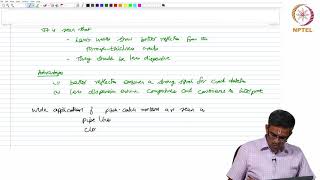 It is seen that
- Lamb waves show better reflection from the through-thickness cracks
- They should be less dispersive
Advantages
i) better reflection ensures a strong signal for crack detection
ii) less dispersion ensures compactness and convenience to interpret
Wide applications of pitch-catch method are seen in
pipe lines
NPTEL